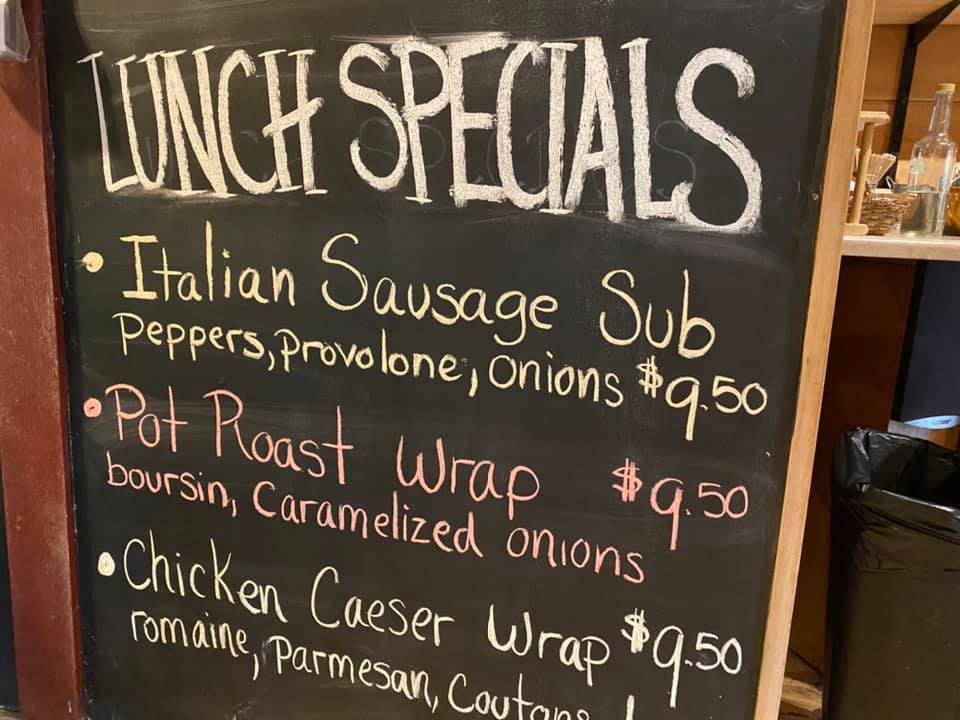 LUNCH SPECIALS
• Italian Sausage Sub
Peppers, Provolone, onions $9.50
• Pot Roast Wrap $9.50
boursin, Caramelized onions
• Chicken Caeser Wrap $9.50
romaine, Parmesan, Coutons